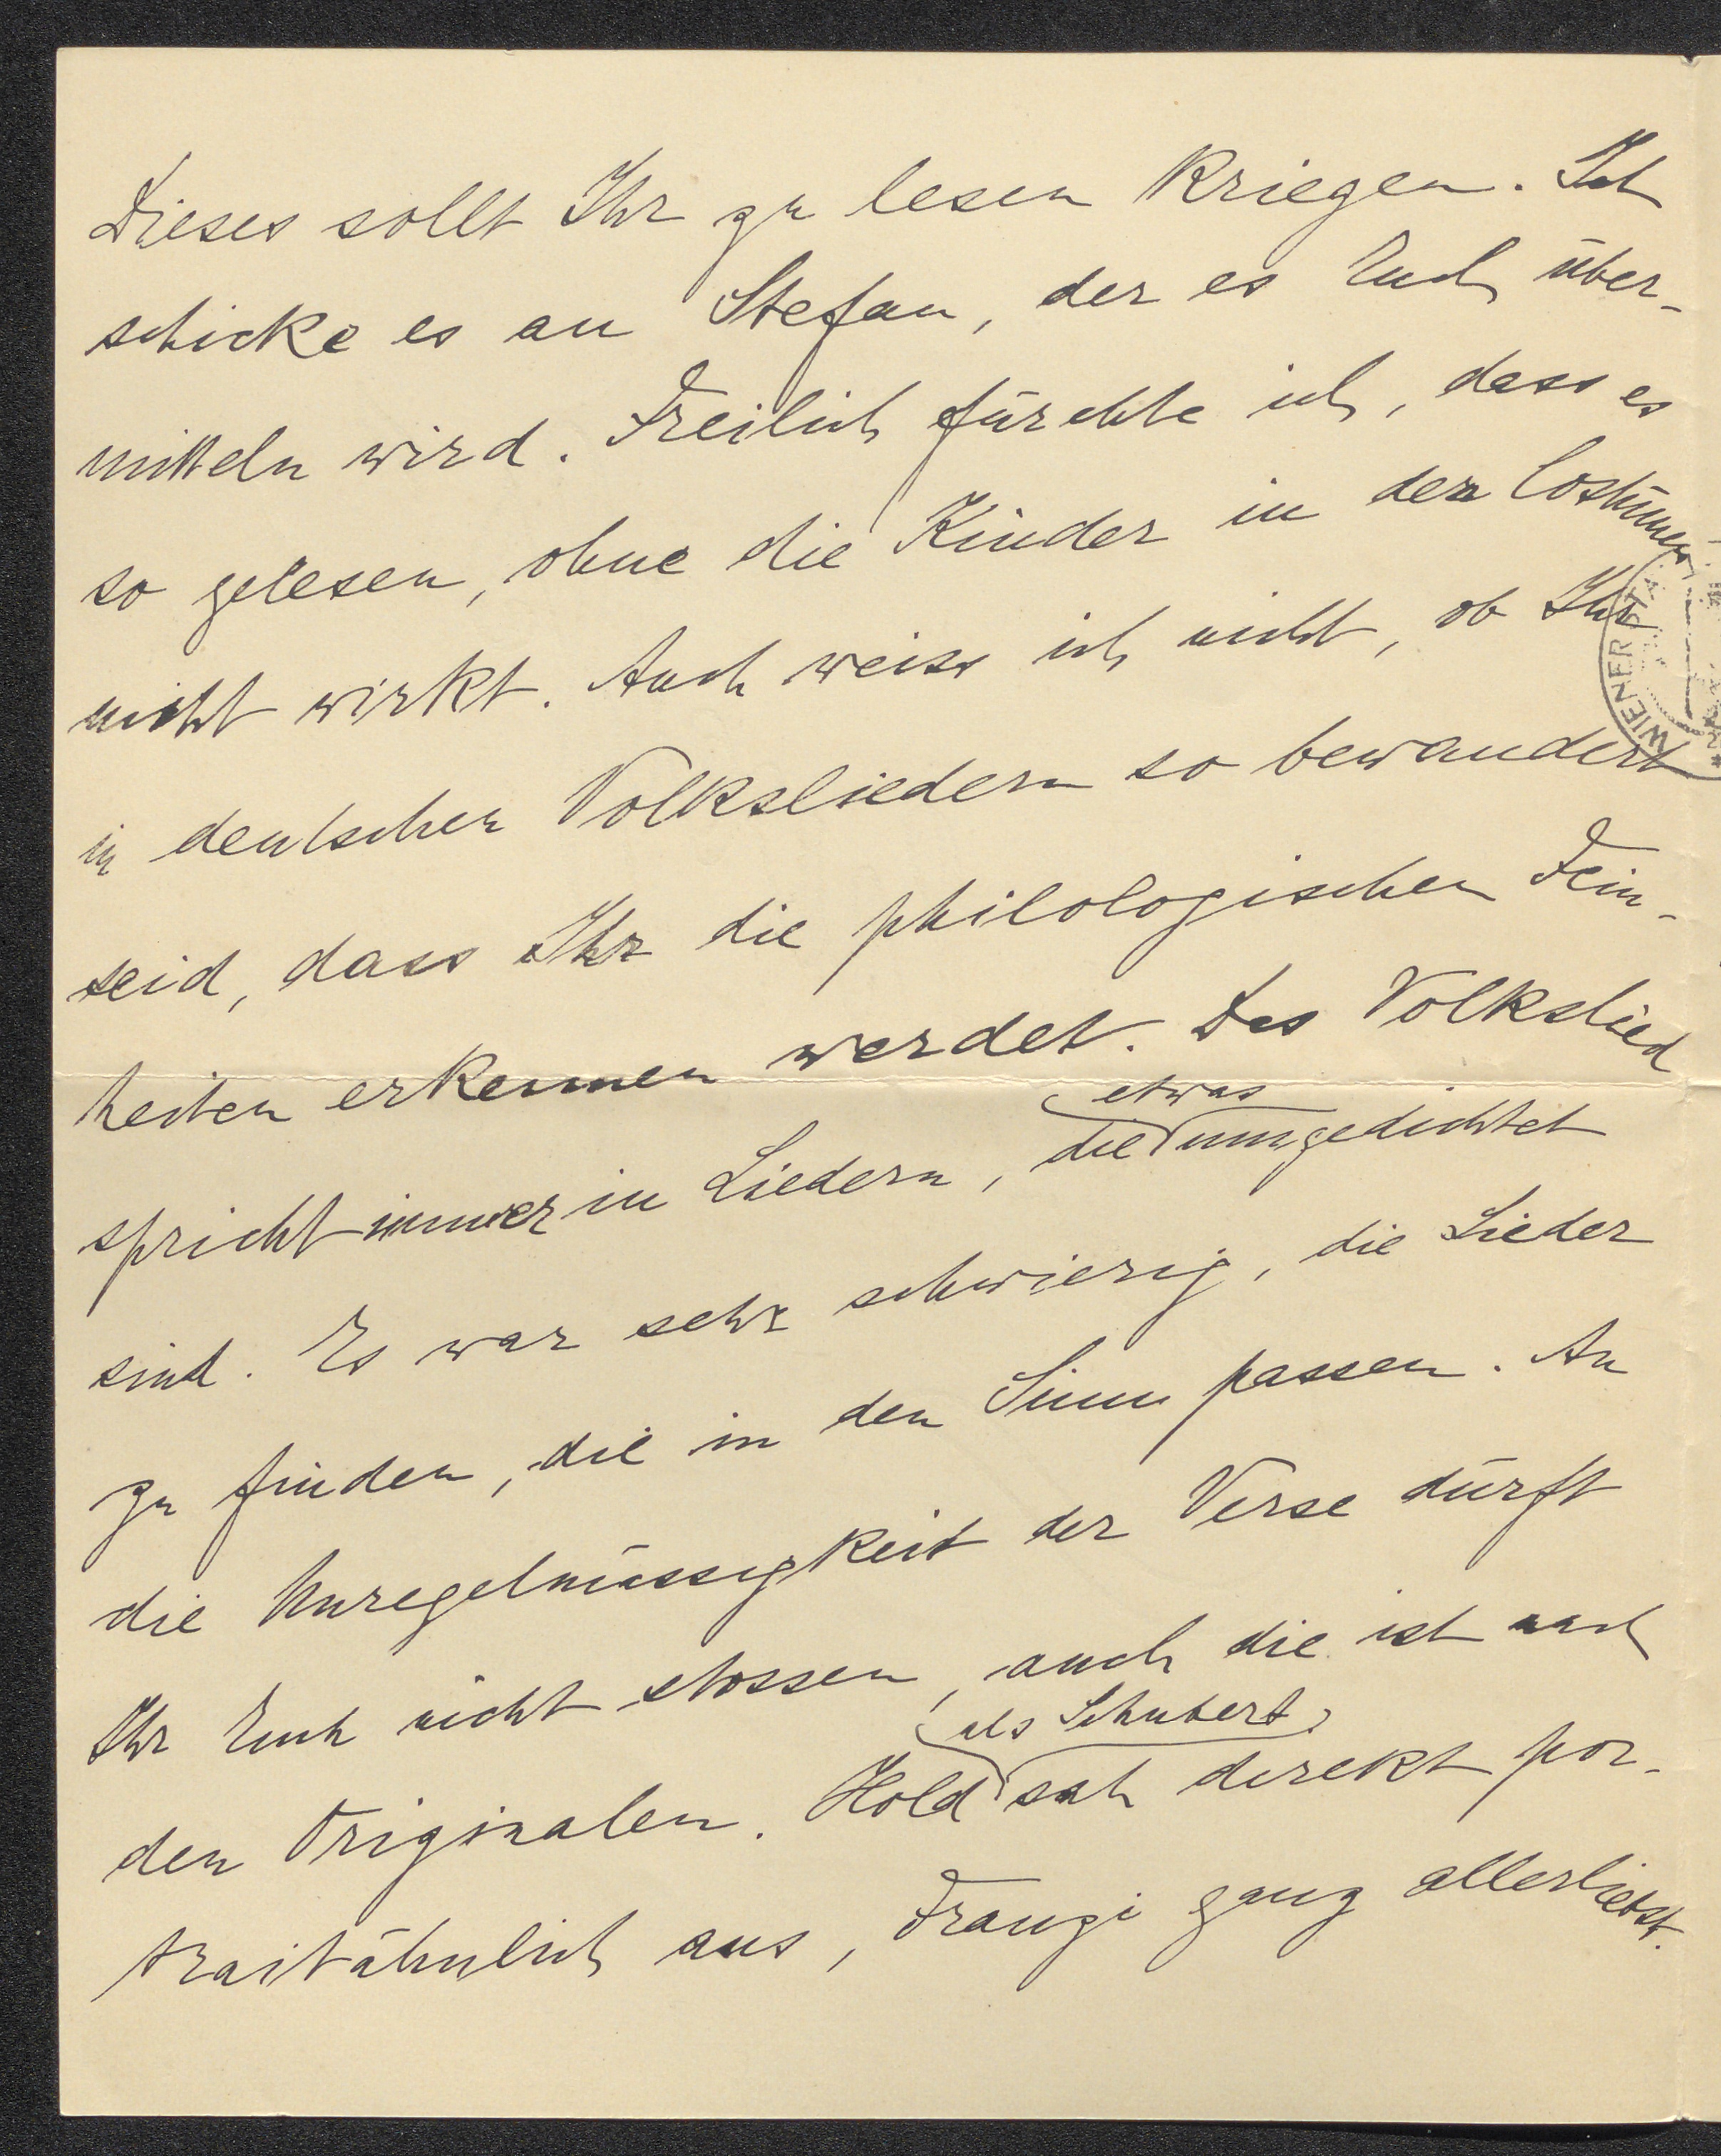 Dieses sollt Ihr zu lesen kriegen. Ich
schicke es an Stefan, der es Euch über-
mitteln wird. Freilich fürchte ich, dass es
so gelesen, ohne die Kinder in den Costümen
nicht wirkt. Auch weiss ich nicht, ob Ihr
in deutschen Volksliedern so bewandert
seid, dass Ihr die philologischen Fein-
heiten erkennen werdet. Das Volkslied
etwas
spricht immer in Liedern, die umgedichtet
sind. Es war sehr schwierig, die Lieder
zu finden, die in den Sinn passen. An
die Unregelmässigkeit der Verse dürft
Ihr Euch nicht stossen, auch die ist nach
als Schubert
den Originalen. Hold sah direkt por-
traitähnlich aus, Franzi ganz allerliebst.
WIENER